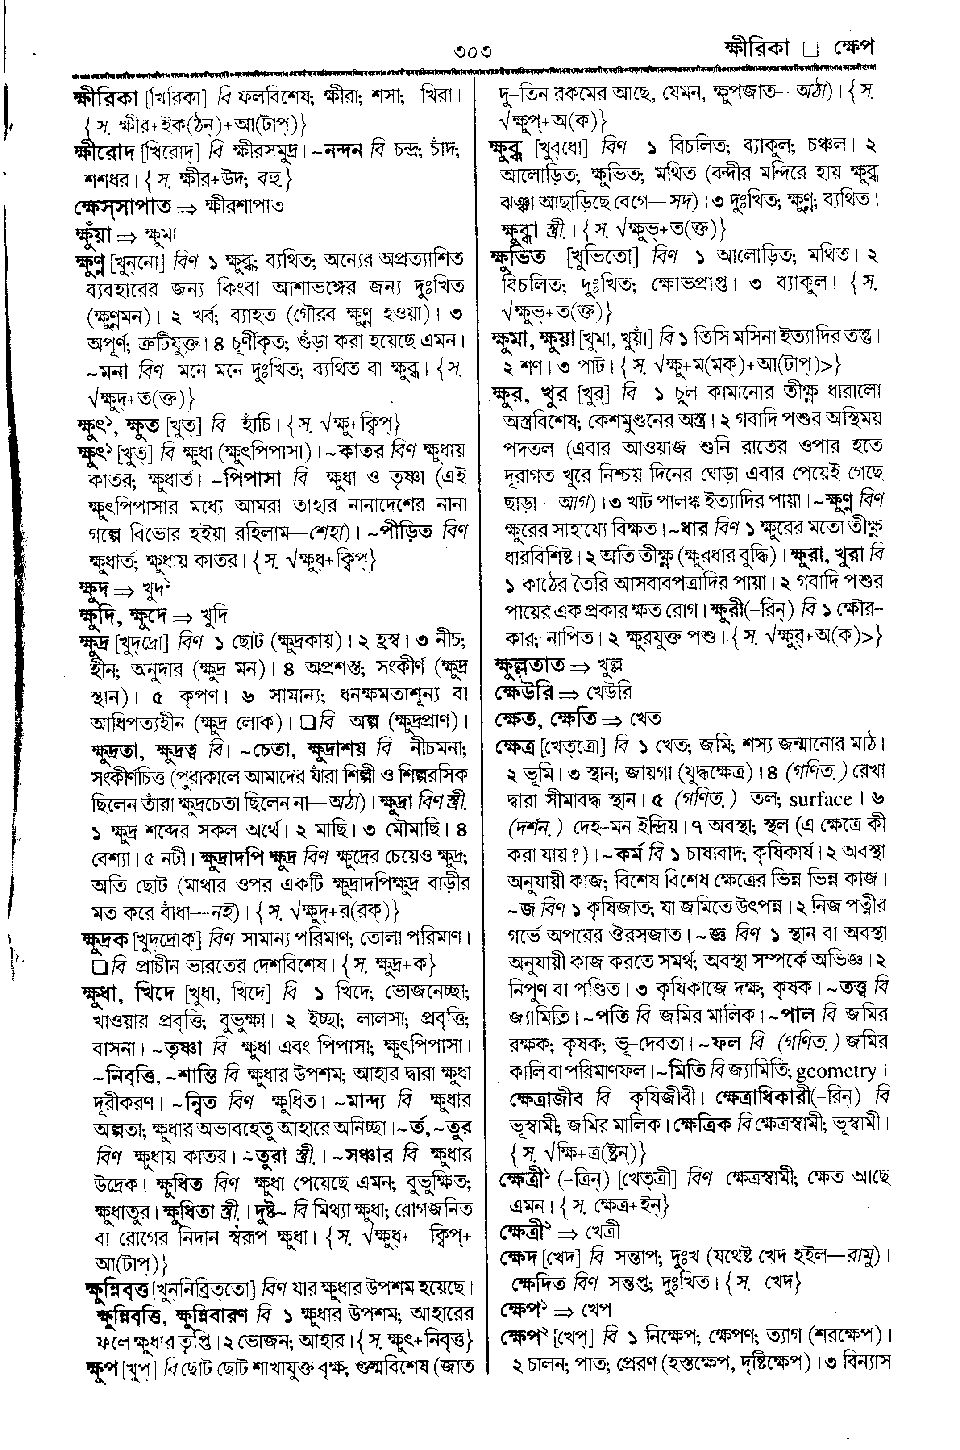 ৩০৩
ক্ষীরিকা □ ক্ষেপ
ক্ষীরিকা [খিরিকা] বি ফলবিশেষ; ক্ষীরা; শসা; খিরা।
{স. ক্ষীর+ইক(ঠন্)+আ(টাপ্)}
ক্ষীরোদ [খিরোদ্] বি ক্ষীরসমুদ্র। ~নন্দন বি চন্দ্র; চাঁদ;
শশধর। {স. ক্ষীর+উদ; বহু}
ক্ষেস্সাপাত ⇒ ক্ষীরশাপাও
ক্ষুঁয়া ⇒ ক্ষুমা
ক্ষুণ্ন [খুন্নো] বিণ ১ ক্ষুব্ধ; ব্যথিত; অন্যের অপ্রত্যাশিত
ব্যবহারের জন্য কিংবা আশাভঙ্গের জন্য দুঃখিত
(ক্ষুণ্নমন)। ২ খর্ব; ব্যাহত (গৌরব ক্ষুণ্ন হওয়া)। ৩
অপূর্ণ; ত্রুটিযুক্ত। ৪ চূর্ণীকৃত; গুঁড়া করা হয়েছে এমন।
~মনা বিণ মনে মনে দুঃখিত; ব্যথিত বা ক্ষুব্ধ। {স.
√ক্ষুদ্+ত(ক্ত)}
ক্ষুৎ১, ক্ষুত [খুত্] বি হাঁচি। {স. √ক্ষু+ক্বিপ্}
ক্ষুৎ২ [খুত্] বি ক্ষুধা (ক্ষুৎপিপাসা)। ~কাতর বিণ ক্ষুধায়
কাতর; ক্ষুধার্ত। ~পিপাসা বি ক্ষুধা ও তৃষ্ণা (এই
ক্ষুৎপিপাসার মধ্যে আমরা তাহার নানাদেশের নানা
গল্পে বিভোর হইয়া রহিলাম—শেহা)। ~পীড়িত বিণ
ক্ষুধার্ত; ক্ষুধায় কাতর। {স. √ক্ষুধ+ক্বিপ্}
ক্ষুদ ⇒ খুদ১
ক্ষুদি, ক্ষুদে ⇒ খুদি
ক্ষুদ্র [খুদ্দ্রো] বিণ ১ ছোট (ক্ষুদ্রকায়)। ২ হ্রস্ব। ৩ নীচ;
হীন; অনুদার (ক্ষুদ্র মন)। ৪ অপ্রশস্ত; সংকীর্ণ (ক্ষুদ্র
স্থান)। ৫ কৃপণ। ৬ সামান্য; ধনক্ষমতাশূন্য বা
আধিপত্যহীন (ক্ষুদ্র লোক)। □বি অল্প (ক্ষুদ্রপ্রাণ)।
ক্ষুদ্রতা, ক্ষুদ্রত্ব বি। ~চেতা, ক্ষুদ্রাশয় বি নীচমনা;
সংকীর্ণচিত্ত (পুরাকালে আমাদের যাঁরা শিল্পী ও শিল্পরসিক
ছিলেন তাঁরা ক্ষুদ্রচেতা ছিলেন না—অঠা)। ক্ষুদ্রা বিণ স্ত্রী.
১ ক্ষুদ্র শব্দের সকল অর্থে। ২ মাছি। ৩ মৌমাছি। ৪
বেশ্যা। ৫ নটী। ক্ষুদ্রাদপি ক্ষুদ্র বিণ ক্ষুদ্রের চেয়েও ক্ষুদ্র;
অতি ছোট (মাথার ওপর একটি ক্ষুদ্রাদপিক্ষুদ্র বাড়ীর
মত করে বাঁধা—নই)। {স. √ক্ষুদ্+র(রক্)}
ক্ষুদ্রক [খুদ্দ্রোক্] বিণ সামান্য পরিমাণ; তোলা পরিমাণ।
□বি প্রাচীন ভারতের দেশবিশেষ। {স. ক্ষুদ্র+ক}
ক্ষুধা, খিদে [খুধা, খিদে] বি ১ খিদে; ভোজনেচ্ছা;
খাওয়ার প্রবৃত্তি; বুভুক্ষা। ২ ইচ্ছা; লালসা; প্রবৃত্তি;
বাসনা। ~তৃষ্ণা বি ক্ষুধা এবং পিপাসা; ক্ষুৎপিপাসা।
~নিবৃত্তি, ~শান্তি বি ক্ষুধার উপশম; আহার দ্বারা ক্ষুধা
দূরীকরণ। ~ন্বিত বিণ ক্ষুধিত। ~মান্দ্য বি ক্ষুধার
অল্পতা; ক্ষুধার অভাবহেতু আহারে অনিচ্ছা। ~র্ত, ~তুর
বিণ ক্ষুধায় কাতর। ~তুরা স্ত্রী.। ~সঞ্চার বি ক্ষুধার
উদ্রেক। ক্ষুধিত বিণ ক্ষুধা পেয়েছে এমন; বুভুক্ষিত;
ক্ষুধাতুর। ক্ষুধিতা স্ত্রী.। দুষ্ট~ বি মিথ্যা ক্ষুধা; রোগজনিত
বা রোগের নিদান স্বরূপ ক্ষুধা। {স. √ক্ষুধ্+ ক্বিপ্+
আ(টাপ্)}
ক্ষুন্নিবৃত্ত [খুন্নিব্রিত্তো] বিণ যার ক্ষুধার উপশম হয়েছে।
ক্ষুন্নিবৃত্তি, ক্ষুন্নিবারণ বি ১ ক্ষুধার উপশম; আহারের
ফলে ক্ষুধার তৃপ্তি। ২ ভোজন; আহার। {স. ক্ষুৎ+নিবৃত্ত}
ক্ষুপ [খুপ্] বি ছোট ছোট শাখাযুক্ত বৃক্ষ; গুল্মবিশেষ (জাত
দু-তিন রকমের আছে, যেমন, ক্ষুপজাত—অঠা)। {স.
√ক্ষুপ্+অ(ক)}
ক্ষুব্ধ [খুব্ধো] বিণ ১ বিচলিত; ব্যাকুল; চঞ্চল। ২
আলোড়িত; ক্ষুভিত; মথিত (বন্দীর মন্দিরে হায় ক্ষুব্ধ
ঝঞ্ঝা আছাড়িছে বেগে—সদ)। ৩ দুঃখিত; ক্ষুণ্ন; ব্যথিত।
ক্ষুব্ধা স্ত্রী.। {স. √ক্ষুভ্+ত(ক্ত)}
ক্ষুভিত [খুভিতো] বিণ ১ আলোড়িত; মথিত। ২
বিচলিত; দুঃখিত; ক্ষোভপ্রাপ্ত। ৩ ব্যাকুল। {স.
√ক্ষুভ্+ত(ক্ত)}
ক্ষুমা, ক্ষুয়া [খুমা, খুয়াঁ] বি ১ তিসি মসিনা ইত্যাদির তন্তু।
২ শণ। ৩ পাট। {স. √ক্ষু+ম(মক্)+আ(টাপ্)>}
ক্ষুর, খুর [খুর্] বি ১ চুল কামানোর তীক্ষ্ণ ধারালো
অস্ত্রবিশেষ; কেশমুণ্ডনের অস্ত্র। ২ গবাদি পশুর অস্থিময়
পদতল (এবার আওয়াজ শুনি রাতের ওপার হতে
দূরাগত খুরে নিশ্চয় দিনের ঘোড়া এবার পেয়েই গেছে
ছাড়া—আগ)। ৩ খাট পালঙ্ক ইত্যাদির পায়া। ~ক্ষুণ্ন বিণ
ক্ষুরের সাহায্যে বিক্ষত। ~ধার বিণ ১ ক্ষুরের মতো তীক্ষ্ণ
ধারবিশিষ্ট। ২ অতি তীক্ষ্ণ (ক্ষুরধার বুদ্ধি)। ক্ষুরা, খুরা বি
১ কাঠের তৈরি আসবাবপত্রাদির পায়া। ২ গবাদি পশুর
পায়ের এক প্রকার ক্ষত রোগ। ক্ষুরী(-রিন্) বি ১ ক্ষৌর-
কার; নাপিত। ২ ক্ষুরযুক্ত পশু। {স. √ক্ষুর্+অ(ক)>}
ক্ষুল্লতাত ⇒ খুল্ল
ক্ষেউরি ⇒ খেউরি
ক্ষেত, ক্ষেতি ⇒ খেত
ক্ষেত্র [খেত্ত্রো] বি ১ খেত; জমি; শস্য জন্মানোর মাঠ।
২ ভূমি। ৩ স্থান; জায়গা (যুদ্ধক্ষেত্র)। ৪ (গণিত.) রেখা
দ্বারা সীমাবদ্ধ স্থান। ৫ (গণিত.) তল; surface। ৬
(দর্শন.) দেহ-মন ইন্দ্রিয়। ৭ অবস্থা; স্থল (এ ক্ষেত্রে কী
করা যায়?)। ~কর্ম বি ১ চাষাবাদ; কৃষিকার্য। ২ অবস্থা
অনুযায়ী কাজ; বিশেষ বিশেষ ক্ষেত্রের ভিন্ন ভিন্ন কাজ।
~জ বিণ ১ কৃষিজাত; যা জমিতে উৎপন্ন। ২ নিজ পত্নীর
গর্ভে অপরের ঔরসজাত। ~জ্ঞ বিণ ১ স্থান বা অবস্থা
অনুযায়ী কাজ করতে সমর্থ; অবস্থা সম্পর্কে অভিজ্ঞ। ২
নিপুণ বা পণ্ডিত। ৩ কৃষিকাজে দক্ষ; কৃষক। ~তত্ত্ব বি
জ্যামিতি। ~পতি বি জমির মালিক। ~পাল বি জমির
রক্ষক; কৃষক; ভূ-দেবতা। ~ফল বি (গণিত.) জমির
কালি বা পরিমাণফল। ~মিতি বি জ্যামিতি; geometry।
ক্ষেত্রাজীব বি কৃষিজীবী। ক্ষেত্রাধিকারী(-রিন্) বি
ভূস্বামী; জমির মালিক। ক্ষেত্রিক বি ক্ষেত্রস্বামী; ভূস্বামী।
{স. √ক্ষি+ত্র(ষ্ট্রন্)}
ক্ষেত্রী১ (-ত্রিন্) [খেত্ত্রী] বিণ ক্ষেত্রস্বামী; ক্ষেত আছে
এমন। {স. ক্ষেত্র+ইন্}
ক্ষেত্রী২ ⇒ খেত্রী
ক্ষেদ [খেদ] বি সন্তাপ; দুঃখ (যথেষ্ট খেদ হইল—রামু)।
ক্ষেদিত বিণ সন্তপ্ত; দুঃখিত। {স. খেদ}
ক্ষেপ১ ⇒ খেপ
ক্ষেপ২ [খেপ্] বি ১ নিক্ষেপ; ক্ষেপণ; ত্যাগ (শরক্ষেপ)।
২ চালন; পাত; প্রেরণ (হস্তক্ষেপ, দৃষ্টিক্ষেপ)। ৩ বিন্যাস